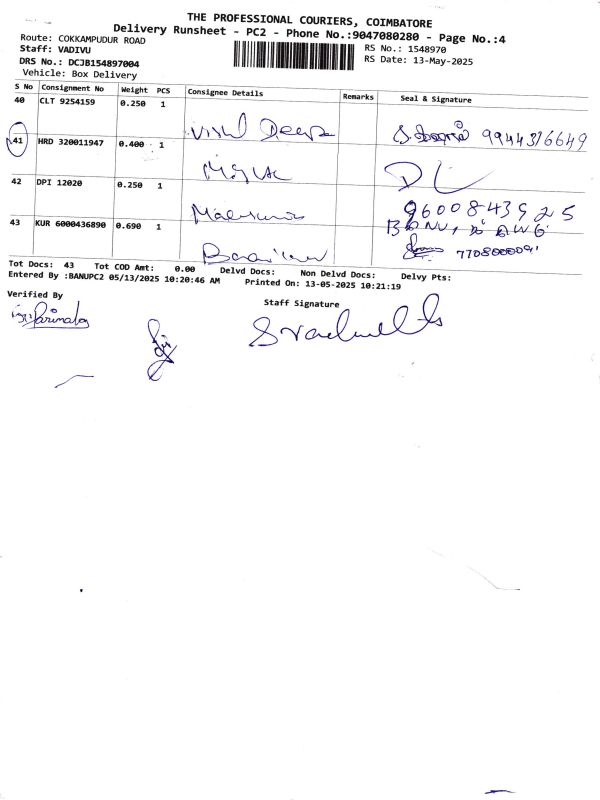 THE PROFESSIONAL COURIERS, COIMBATORE
Delivery Runsheet - PC2 - Phone No.:9047080280 - Page No.:4
Route: COKKAMPUDUR ROAD
RS No.: 1548970
Staff: VADIVU
RS Date: 13-May-2025
DRS No.: DCJB154897004
Vehicle: Box Delivery
S No Consignment No Weight PCS Consignee Details Remarks Seal & Signature
40 CLT 9254159 0.250 1
9944316649
41 HRD 320011947 0.400 1
42 DPI 12020 0.250 1
9600843925
43 KUR 6000436890 0.690 1
Tot Docs: 43 Tot COD Amt: 0.00 Delvd Docs: Non Delvd Docs: Delvy Pts:
Entered By :BANUPC2 05/13/2025 10:20:46 AM Printed On: 13-05-2025 10:21:19
Verified By
Staff Signature